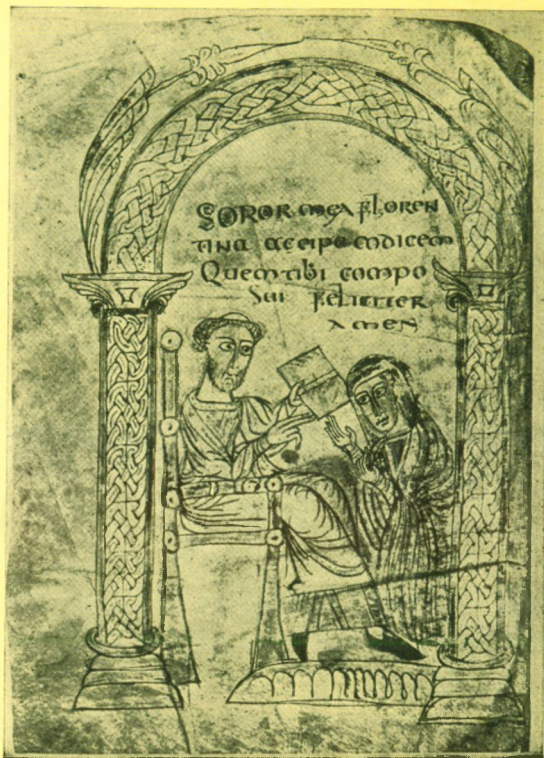 SOROR mEA FLOREN
TINA ACCIPE CODICEm
QUEmTIBI COmPO
SUI FELICITER
AmEN